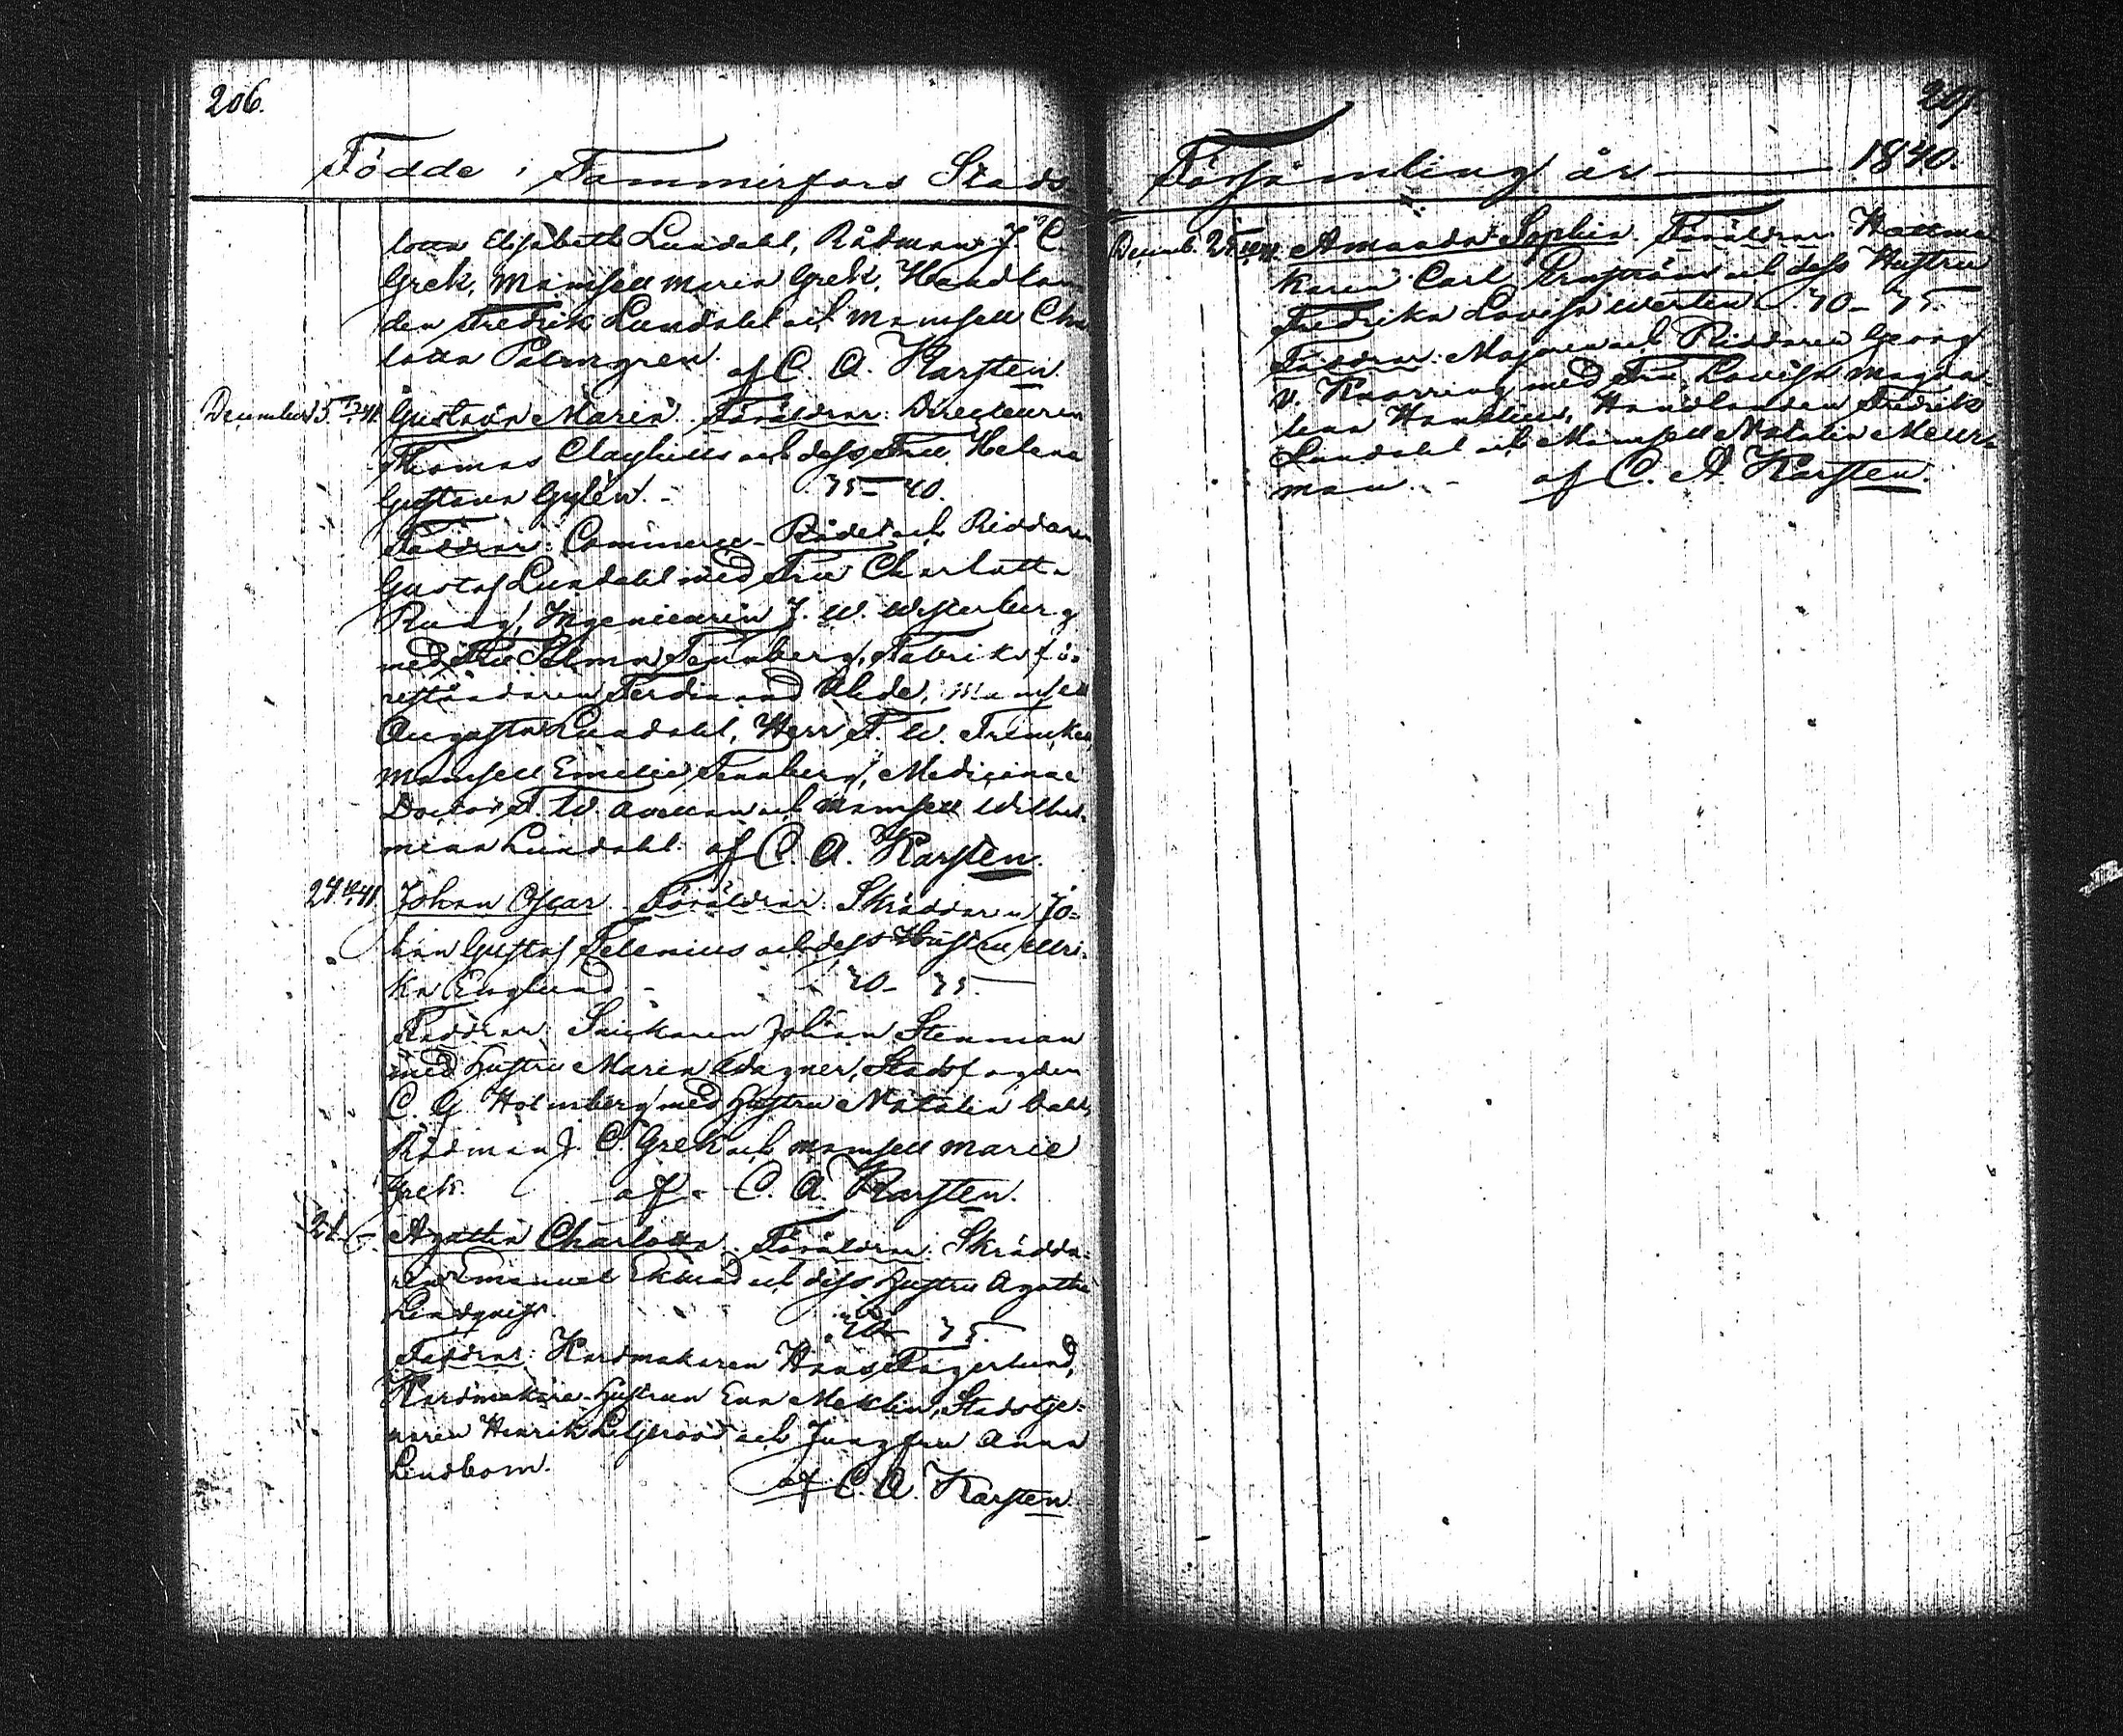 206.
Födde i Tammerfors Stads
lotta Elisabeth Lundahl, Rådman J. C.
Grek, Mamsell Maria Grek, Handlan
den Fredrik Lundahl och Mamsell Cha
lotta Palmgren. af C. A. Karsten.
December 15. Gustava Maria. Föräldrar: Directeuren
Thomas Clayhills och dess Fru Helena
Gustava Gylén. - 35 - 40.
Faddrar: Commerce-Rådet och Riddaren
Gustaf Lundahl med Fru Charlotta
Rung, Ingenieuren J. W. Westerberg
med Fru Selma Tennberg, Fabriksfö-
reståndaren Ferdinand Uhde, Mamsell
Augusta Lundahl, Herr F. W.
Mamsell Emelie Tennberg, Medicinae
Doctor F. W. Avellan och Mamsell Wilhel-
mina Lundahl. af C. A. Karsten.
24 Johan Oscar. Föräldrar: Skräddaren Jo-
han Gustaf Selenius och dess Hustru Ulri-
ka Englund - 30 - 35.
Faddrar: Snickaren Johan Stenman
med Hustru Maria Wagner, Stadsfogden
C. G. Holmberg med Hustru Natalia
Rådman J. C. Grek och Mamsell Marie
Grek. af C. A. Karsten.
21 Agatha Charlotta. Föräldrar: Skrädda-
ren Emanuel Eklund och dess Hustru Agatha
Lindqvist. 35.
Faddrar: Kardmakaren Hans Fagerlund,
Kardmakare-Hustrun Eva Meklin, Stadstje-
naren Henrik Liljeroos och Jungfru Anna
Lindbom.
af C. A. Karsten.
207.
Församling år 1840.
Decemb. 25 Amanda Sophia. Föräldrar: Hattma
karen Carl Enström och dess Hustru
Fredrika Lovisa Wertén 30 - 35.
Faddrar: Majoren och Riddaren Georg
v. Knorring med Fru Lovisa Magda-
lena Handlanden Fredrik
Lundahl och Mamsell Natalia Meur-
man. - af C. A. Karsten.